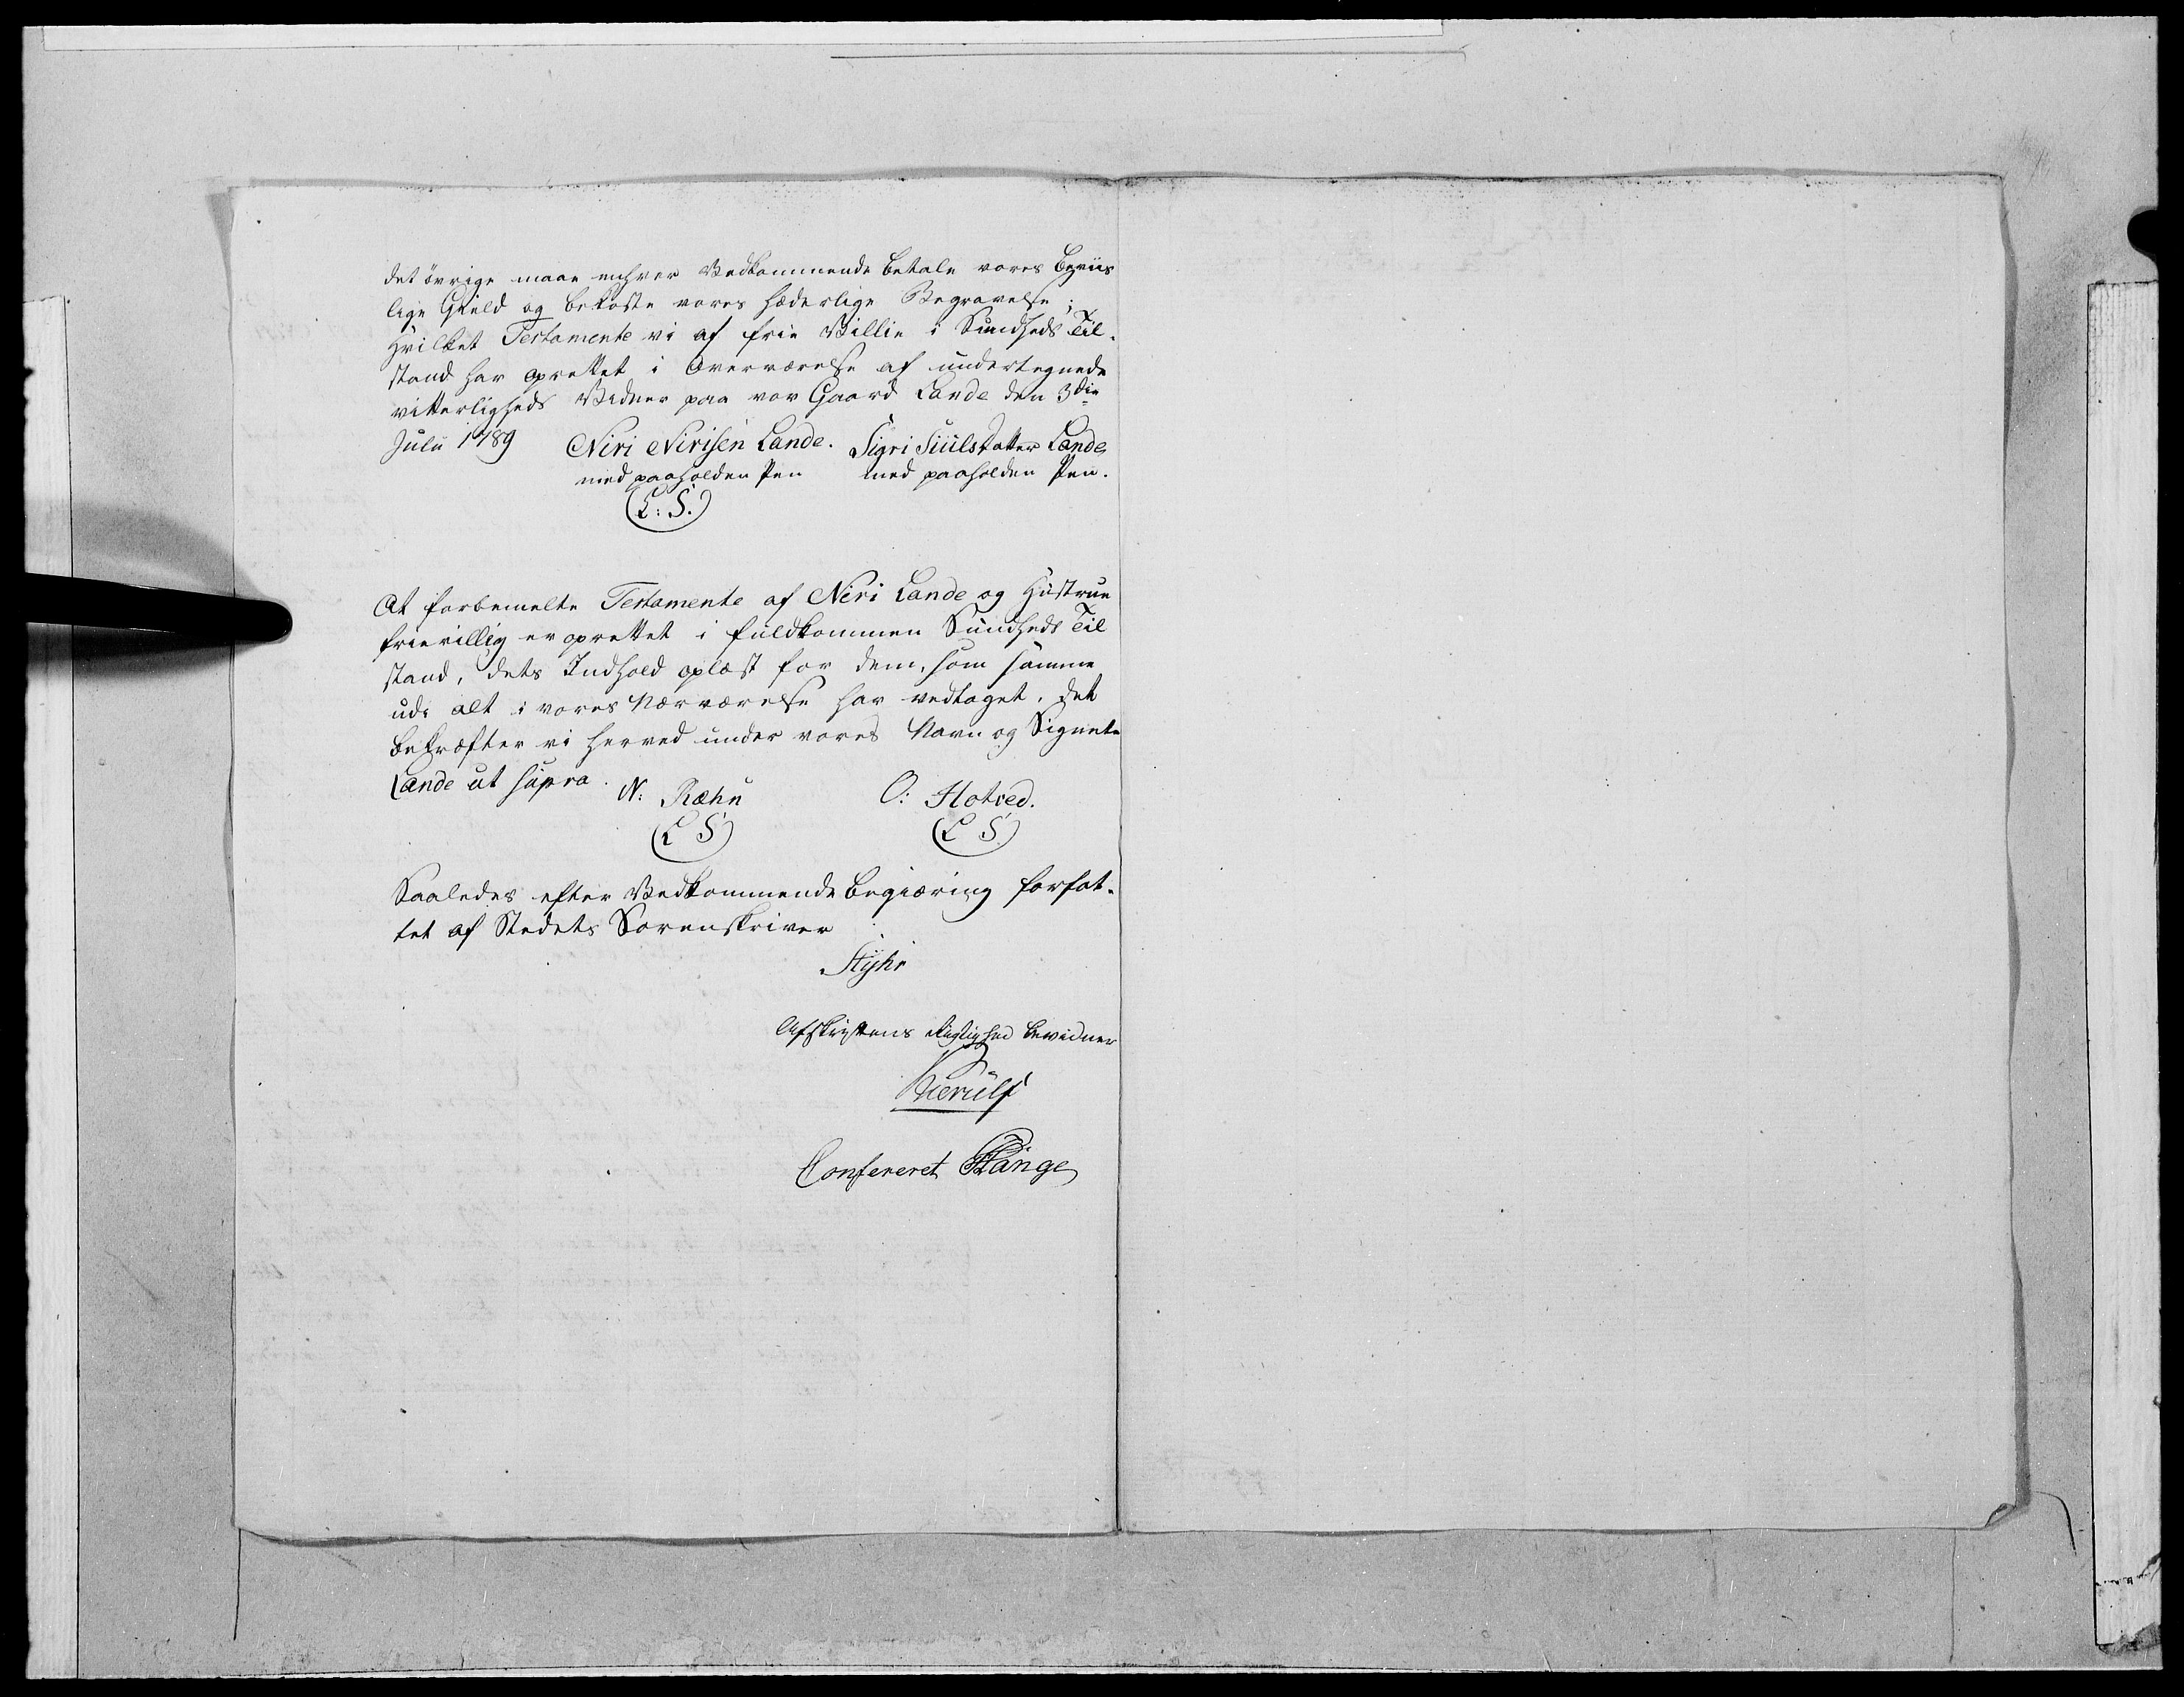 det övrige maae enhver Vedkommende betale vores beviis
lige Gield og bekoste vores hæderlige Begravelse;
Hvilket Testamente vi af frie Villie i Sundheds Til-
stand har oprettet i Overværelse af undertegnede
vitterligheds Vidner paa vor Gaard Lande den 3die
Julii 1789 Niri Nirisen Lande. Sigri Siulsdatter Lande
med paaholden Pen med paaholden Pen.
(L: S.)
At forbemelte Testamente af Niri Lande og Hustrue
frievillig er oprettet i fuldkommen Sundheds Til
stand, dets Indhold oplæst for dem, som samme
udi alt i vores Nærværelse har vedtaget, det
bekræfter vi herved under vores Navn og Signete
Lande ut supra. N: Ræhn O: Hotved.
(L S) (L S)
Saaledes efter Vedkommende begiæring forfat-
tet af Stedets Sorenskriver
Styhr
Afskriftens Rigtighed bevidner
Kierulf
Confereret Stange